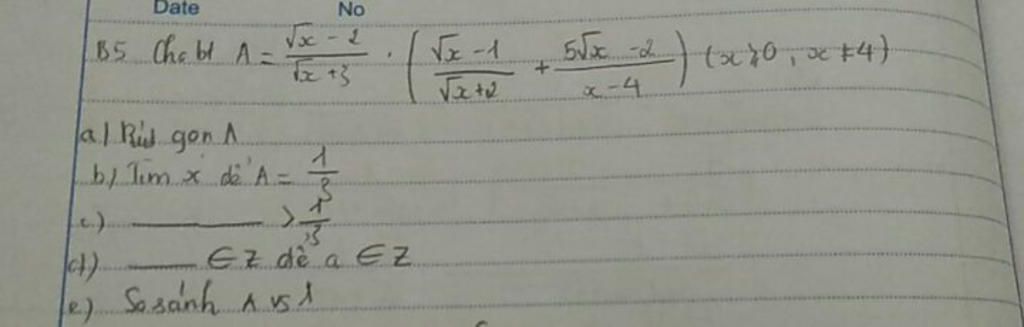 Date No
B5 Cho bt A = \frac{\sqrt{x} - 2}{\sqrt{x} + 3} \cdot \left( \frac{\sqrt{x} - 1}{\sqrt{x} + 2} + \frac{5\sqrt{x} - 2}{x - 4} \right) (x ≥ 0, x ≠ 4)
a) Rút gọn A
b) Tìm x để A = \frac{1}{3}
c) ——— > \frac{1}{3}
d) —— ∈ Z dê a ∈ Z
e) So sánh A vs 1